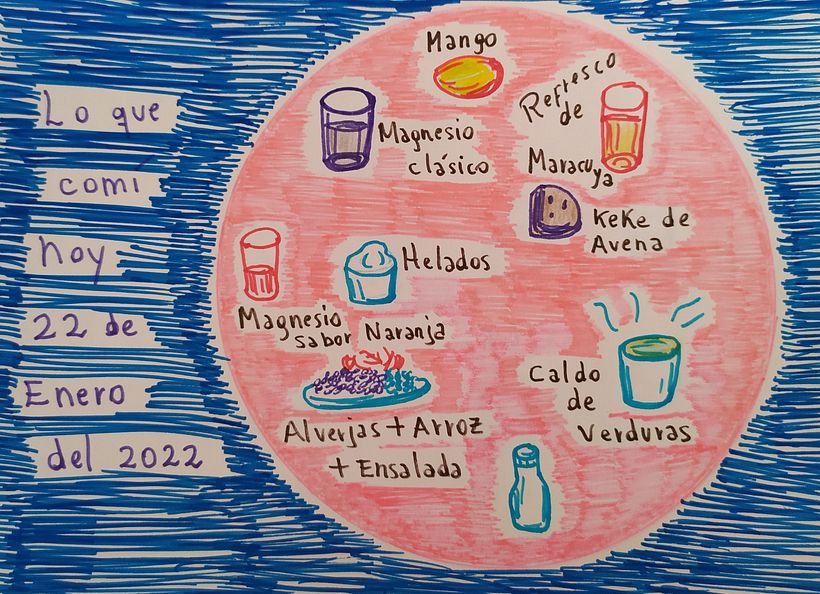 Lo que
comí
hoy
22 de
Enero
del 2022
Mango
Refresco
de
Maracuya
Magnesio
clásico
KeKe de
Avena
Helados
Magnesio
sabor Naranja
Caldo
de
Verduras
Alverjas + Arroz
+ Ensalada